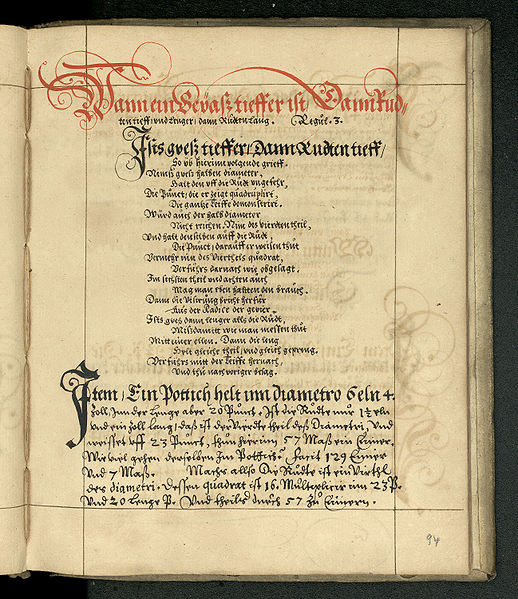 Wann ein Gevässz tieffer ist Dann Rud-
ten tieff, und lenger, dann Rudten lang. Regul. 3.
Ists gvess tieffer, Dann Rudten tieff,
So üb hierinn volgende grieff.
Nemß gvess halben diameter,
Halt den uff die Rudt ungefehr,
Die Punct, die er zeigt quadruphre,
Die gantze Tieffe demonstrire.
Würd auch der halb diameter
Nicht reichen, Nim des vierdten theil,
Und halt denselben auff die Rudt,
Die Punct, darauff er weisen thut
Vermehr mit des Viertheils quadrat,
Verfahrs darnach wie obgesagt.
Im sechsten theil und achten auch
Mag man eben hallten den brauch.
Dann die Visirung bricht herfür
Aus der Radice der gevier.
Ists gvess dann lenger alls die Rudt,
Miss damitt wie man messen thut
Mitt einer ellen. Dann die leng
Heylt gleiche theil, und gleichs gepreng.
Verfahrs mitt der Tieffe hernach,
Und thu nach voriger besag.
Item, Ein Pottich helt inn diametro 6 eln 4.
zoll, Inn der Lenge aber 20 Punct. Ist die Rudte nur 1½ eln
und ein zoll lang, das ist der Vierdte theil deß Diametri, und
weisset uff 23 Punct, thun hierinn 57 Maß ein Eimer.
Wie viel gehen derselben Im Pottich? Facit 129 Eimer
und 7 Maß. Machs allso Die Rudte ist ein Vierthl
des diametri. Dessen quadrat ist 16. Multiplicir im 23 P.
und 20 Lenge P. Und theils durch 57 zu Eimern.
94